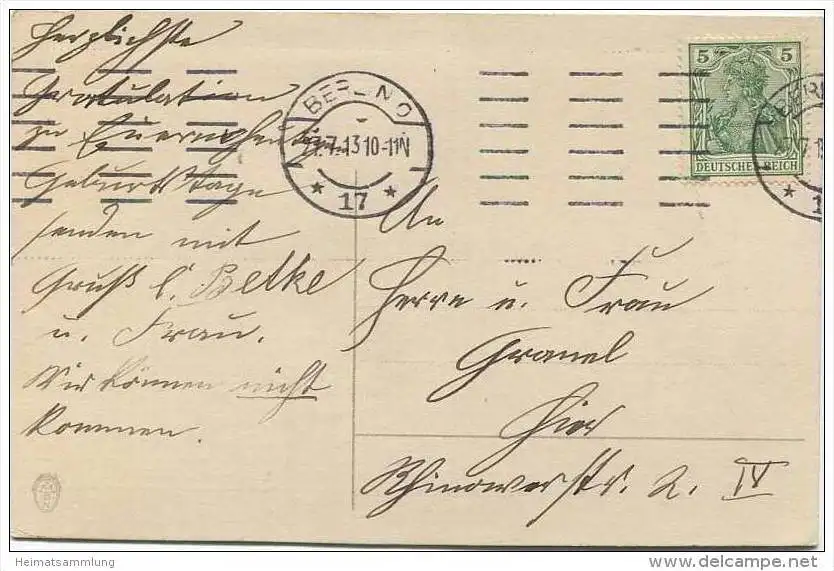 Herzlichste
Gratulation
zu Eurem heutigen
Geburtstage
senden mit
Gruß C. Betke
u. Frau.
Wir können nicht
kommen.
5 5
DEUTSCHES REICH
BERLIN O
7.13 10-11N
* 17 *
An
Herrn u. Frau
Granel
Hier
Rhinowerstr. 2. IV
Heimatsammlung
www.delcampe.net